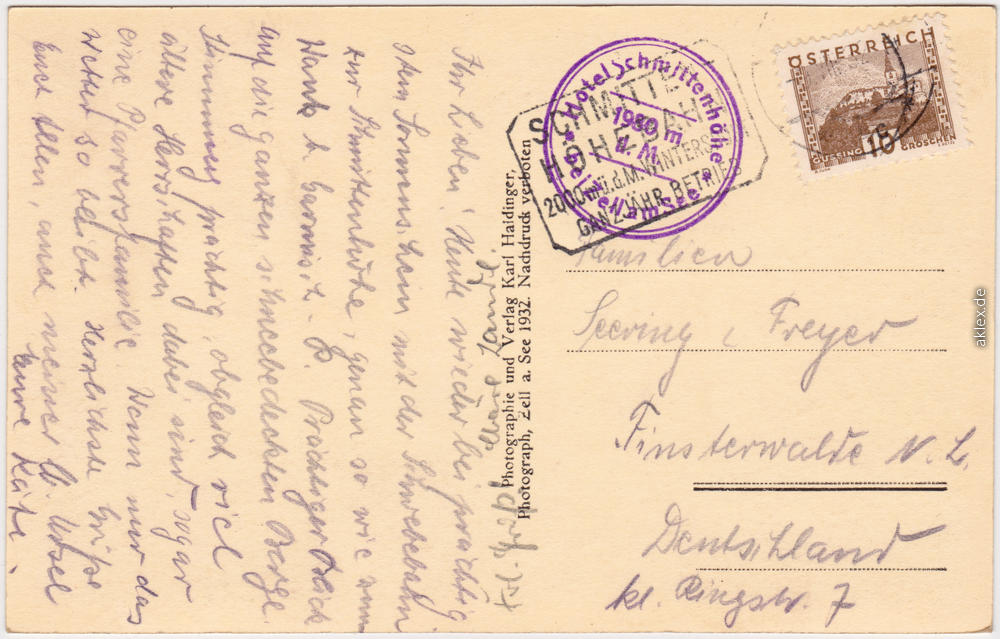 Ihr Lieben! Heute wieder bei prächtig
stem Sonnenschein mit der Schwebebahn
zur Schmittenhöhe, genau so wie wenn
Prächtiger Blick
auf die ganzen schneebedeckten Berge.
Stimmung prächtig, obgleich viel
ältere Herrschaften dabei sind, sogar
eine Pfarrersfamilie. Wenn nur das
Wetter so bleibt. Herzlichste Grüße
Euch allen, auch meiner lb. Ursel
Eure Käte
Photographie und Verlag Karl Haidinger,
Photograph, Zell a. See 1932. Nachdruck verboten
Hotel Schmittenhöhe
1980 m
ü. M.
bei Zell am See
SCHMITTEN
HÖHE BAHN
2000 m ü.d.M. WINTERSP
GANZJÄHR. BETRIEB
ÖSTERREICH
GÜSSING
GROSCHEN
Familien
Seering, Freyer
Finsterwalde N. L.
Deutschland
kl. Ringstr. 7
aklex.de